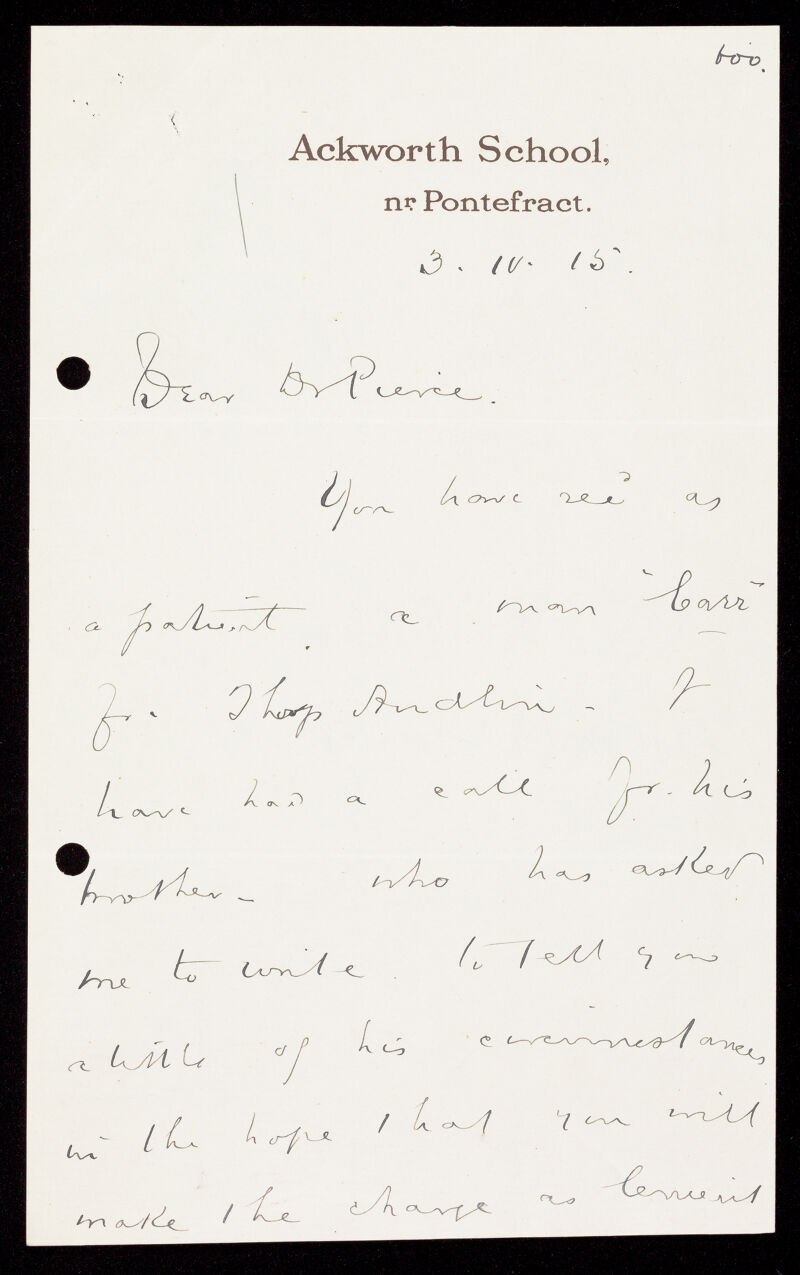 Ackworth School,
nr Pontefract.
3. 10. 15.
Dear Dr Pierce.
You have recd as
a patient, a man "Carr"
fr. Thorp Audlin - I
have had a call fr. his
brother - who has asked
me to write to tell you
a little of his circumstances
in the hope that you will
make the charge as lenient